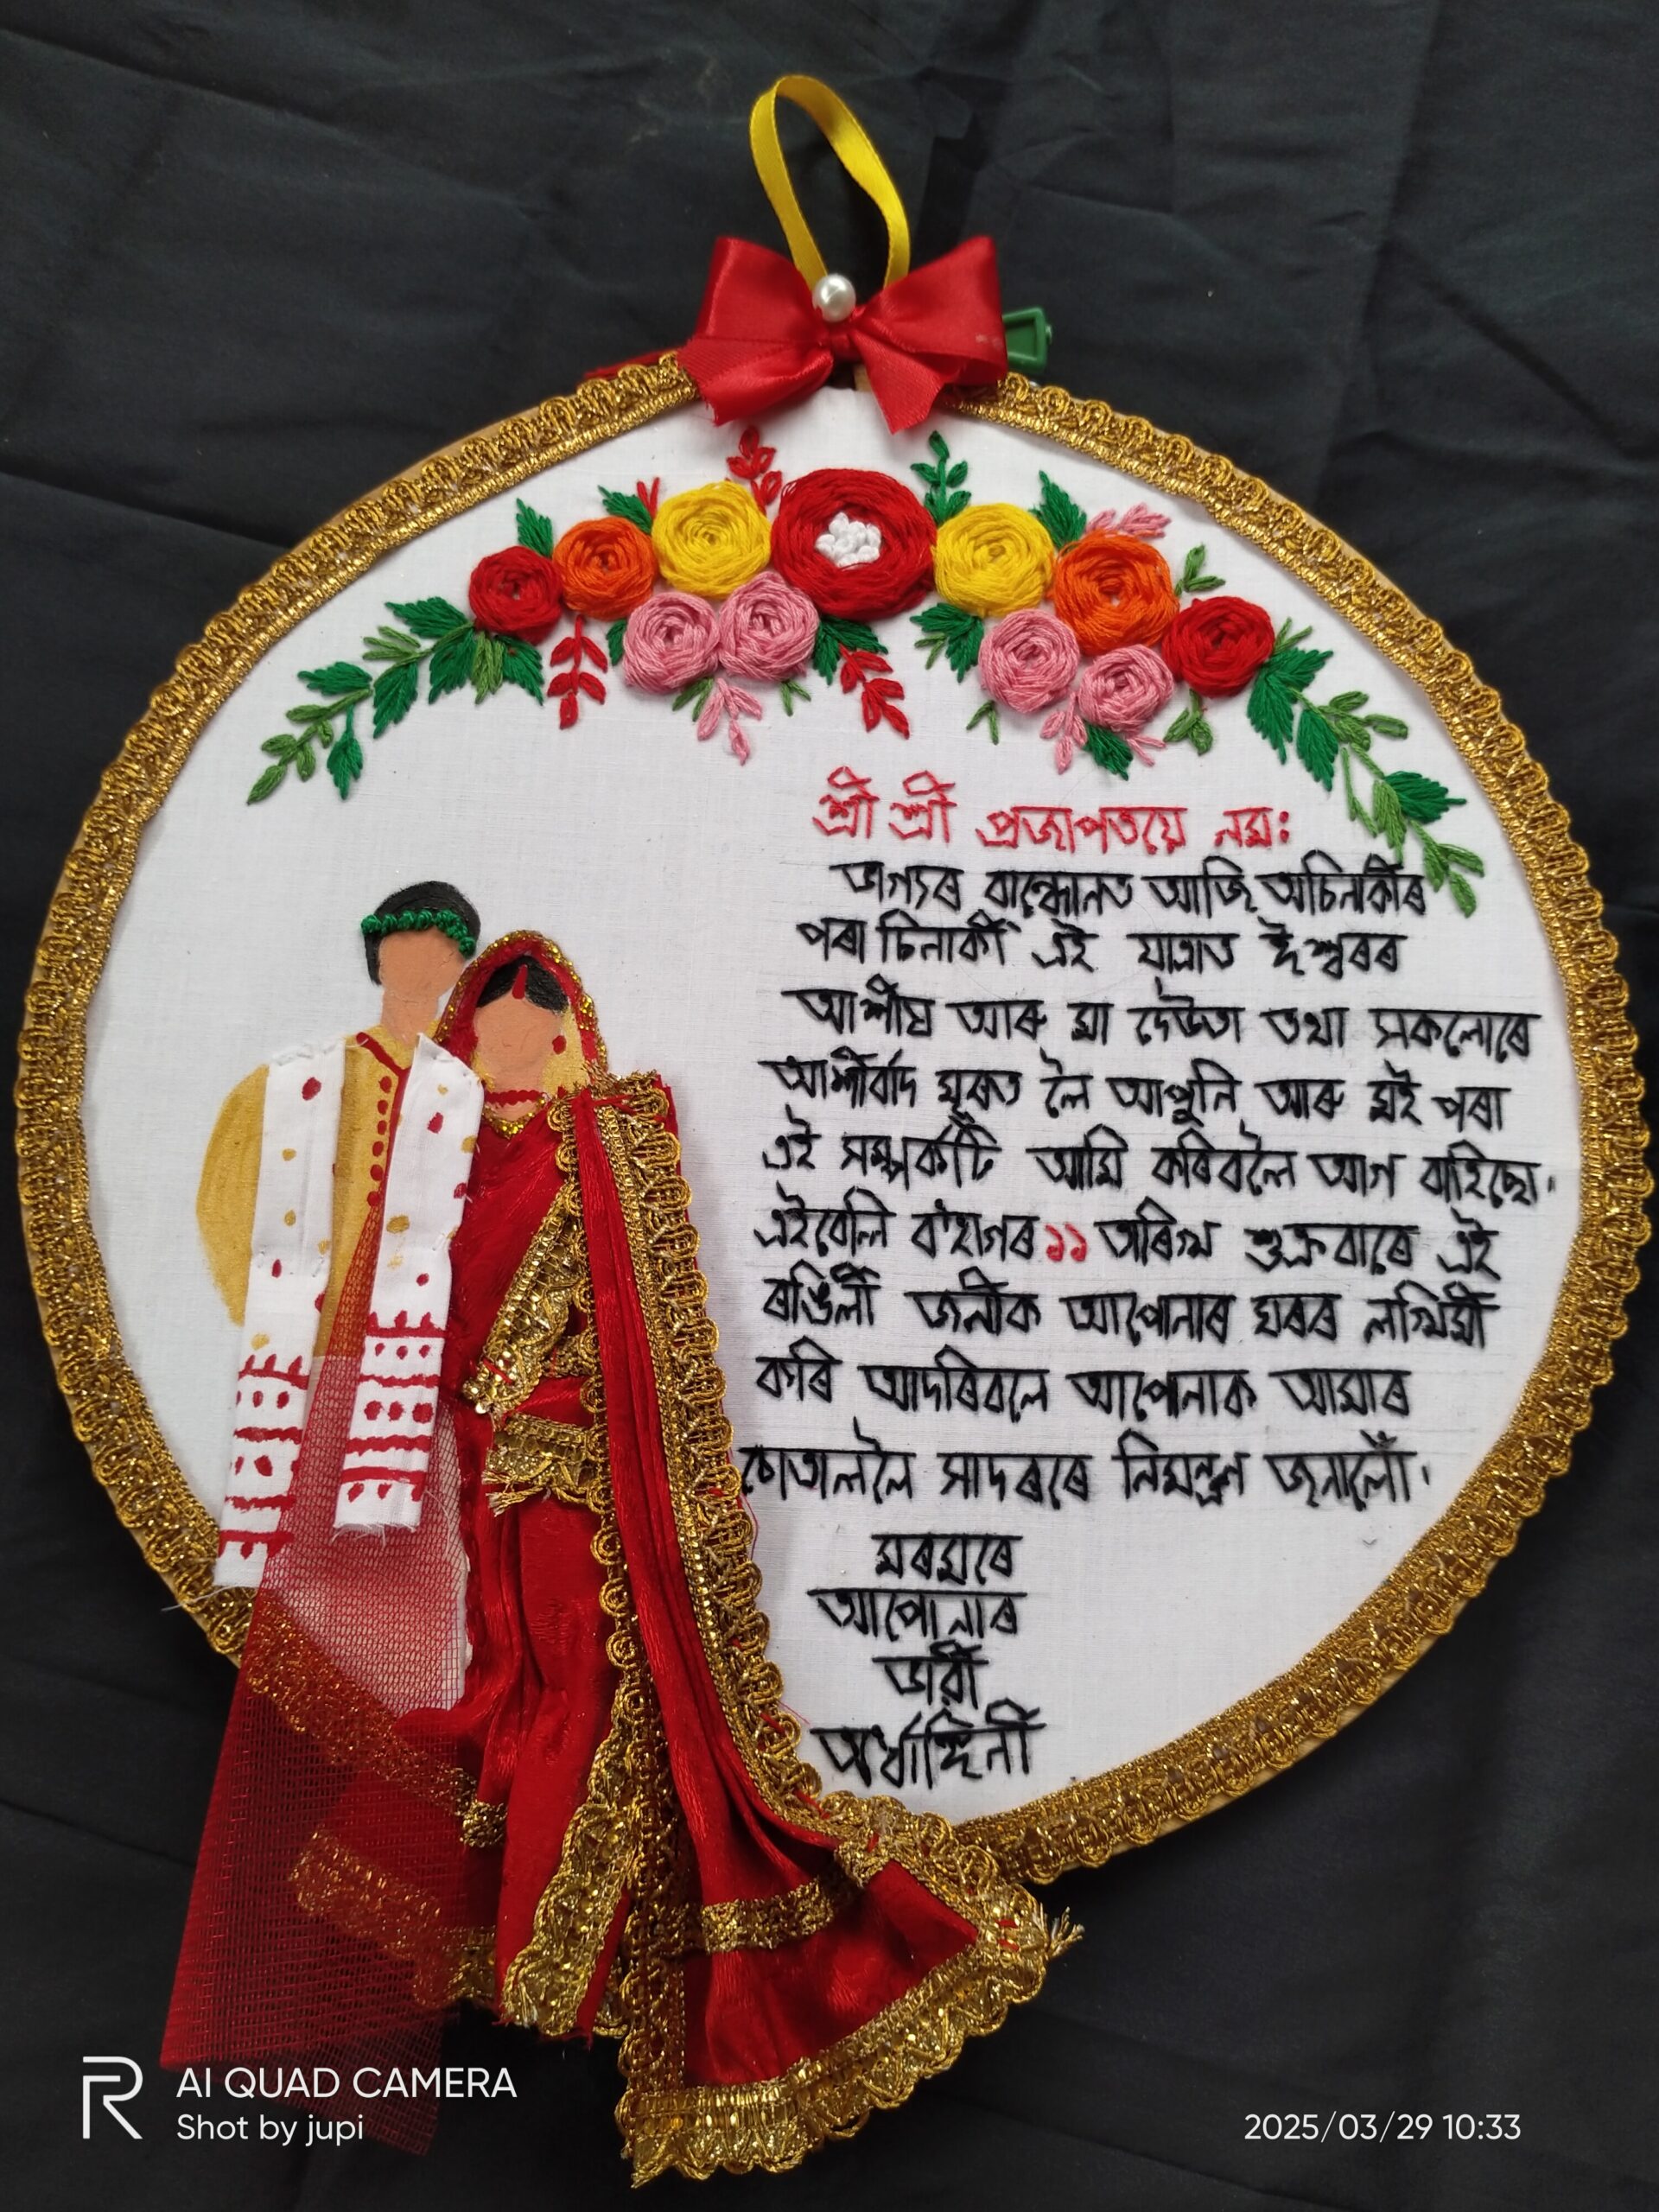 শ্ৰী শ্ৰী প্ৰজাপতয়ে নমঃ
ভাগ্যৰ বান্ধোনত আজি অচিনাকীৰ
পৰা চিনাকী এই যাত্ৰাত ঈশ্বৰৰ
আশীষ আৰু মা দেউতা তথা সকলোৰে
আৰ্শীবাদ মূৰত লৈ আপুনি আৰু মই পৰা
এই সম্পৰ্কটি আমি কৰিবলৈ আগ বাঢ়িছো।
এইবেলি ব'হাগৰ ১১ তাৰিখ শুক্ৰবাৰে এই
ৰঙিলী জনীক আপোনাৰ ঘৰৰ লখিমী
কৰি আদৰিবলে আপোনাক আমাৰ
চোতাললৈ সাদৰৰে নিমন্ত্ৰণ জনালোঁ।
মৰমৰে
আপোনাৰ
ভাৱী
অৰ্ধাঙ্গিনী
AI QUAD CAMERA
Shot by jupi
2025/03/29 10:33